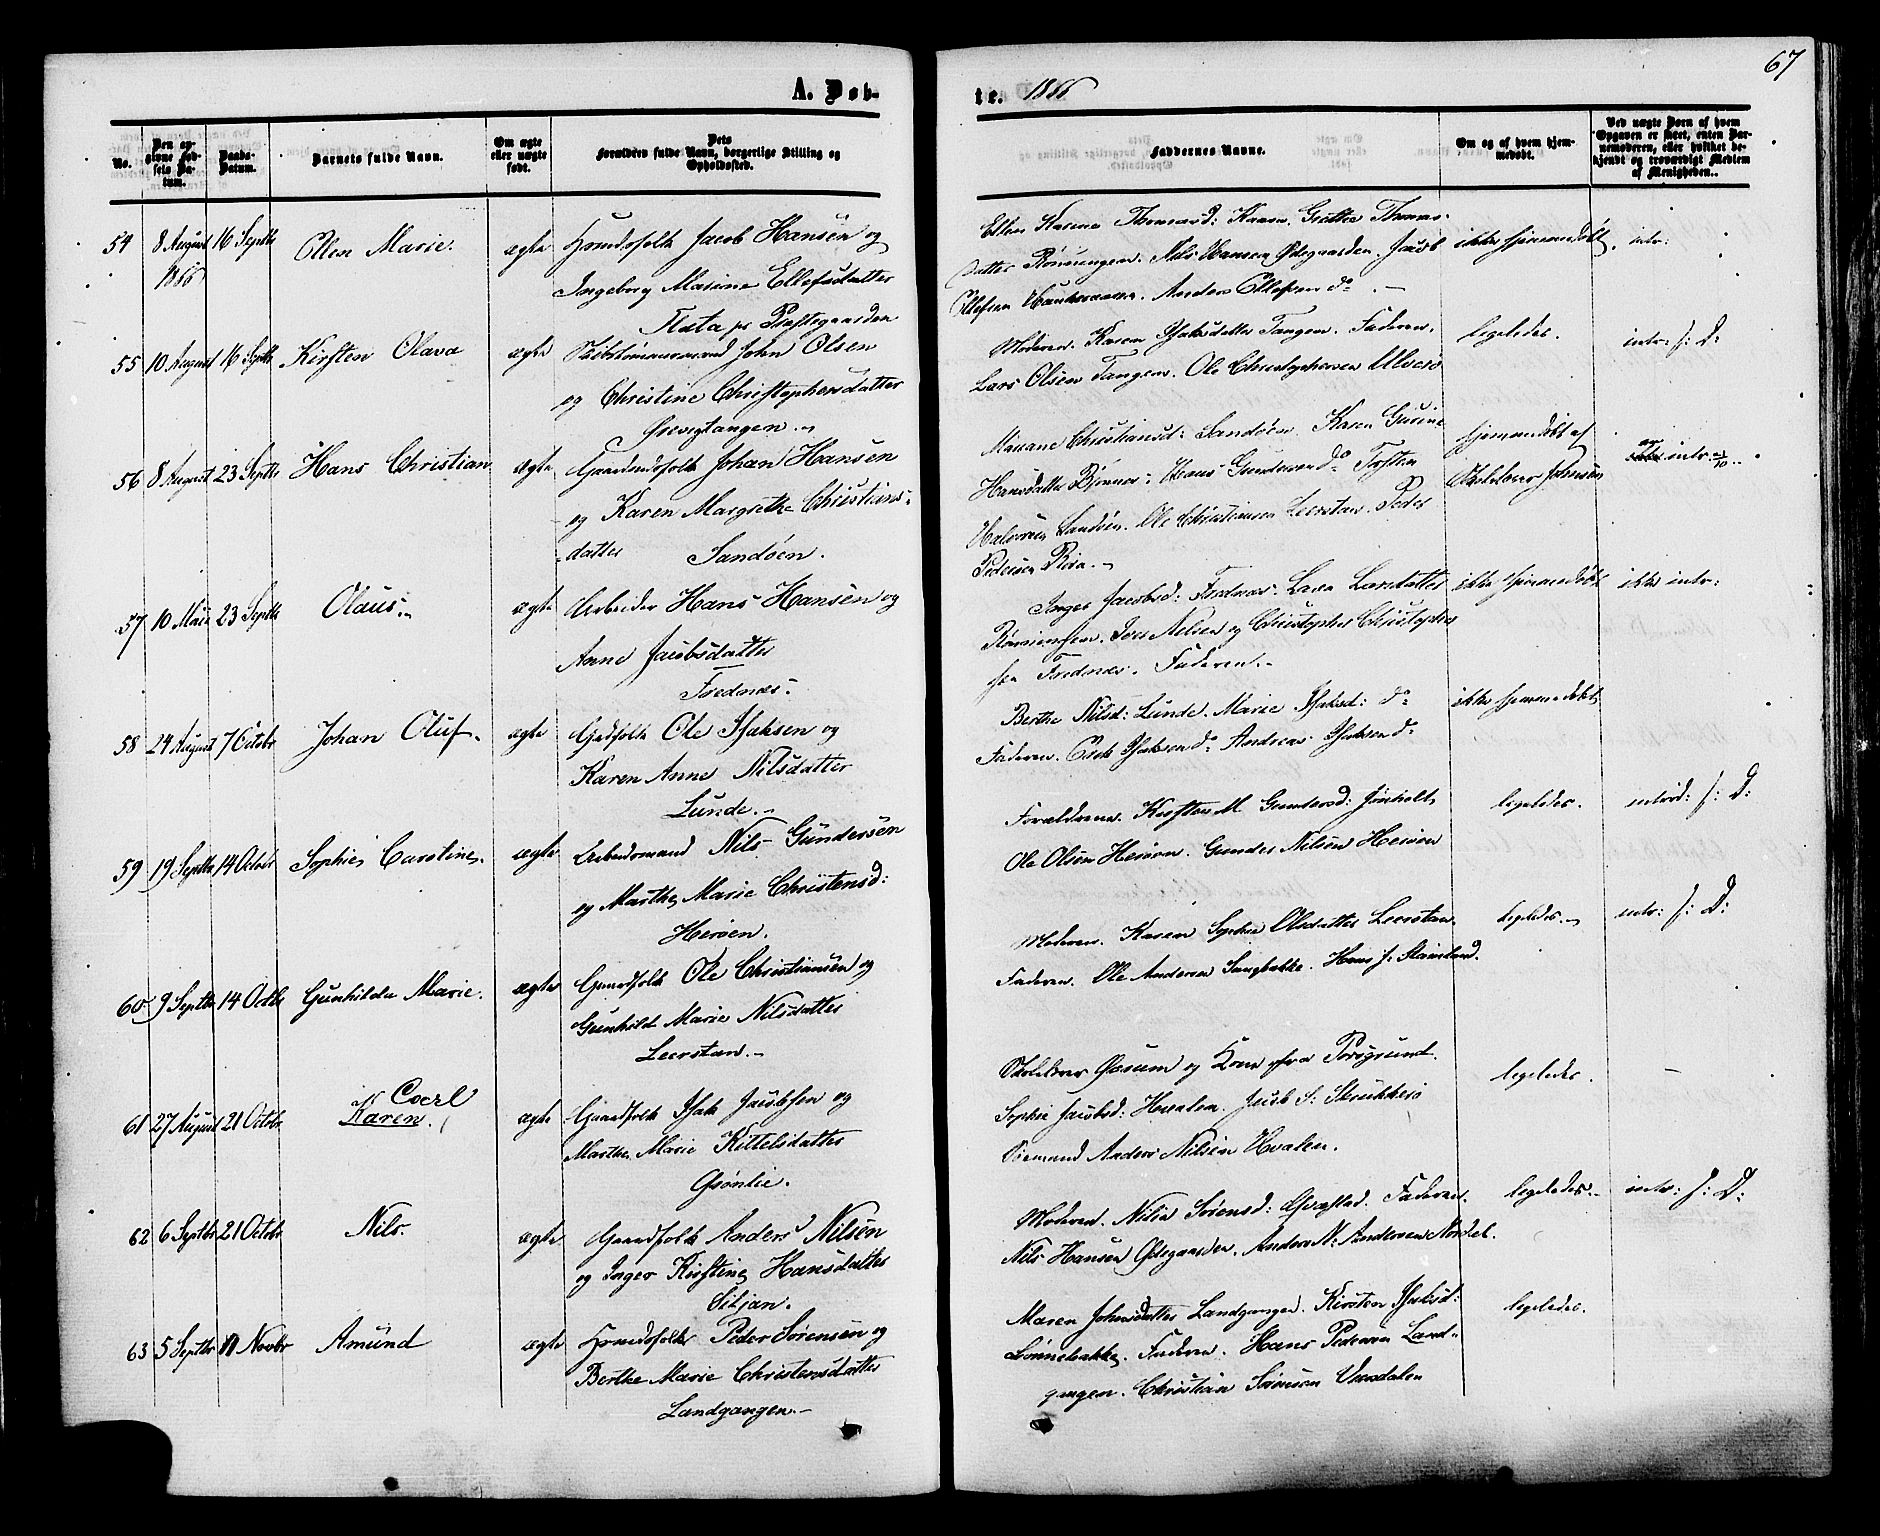 67
A. Døb-
te. 1866
No.
Den op-
givne Fød-
sels Da-
tum.
Daabs-
Datum.
Barnets fulde Navn.
Om ægte
eller uægte
født.
Dets
Forældres fulde Navn, borgerlige Stilling og
Opholdssted.
Faddernes Navne.
Om og af hvem hjem-
medøbt.
Ved uægte Børn af hvem
Opgaven er skeet, enten Bar-
nemoderen, eller hvilket be-
kjendt og troværdigt Medlem
af Menigheden.
54 8 August 16 Septbr Ellen Marie. ægte Huusmdsfolk Jacob Hansen og
1866
Ingeborg Marine Ellefsdatter
Flata ps Præstegaarden
Ellen Karine Thomasd: Karen Grethe Thomas-
datter Rønningen. Nils Hansen Ødegaarden. Jacob
Ellefsen. Anders Ellefsen do
ikke hjemmedøbt. intr:
55 10 August 16 Septbr Kirsten Olava ægte John Olsen
og Christine Christophersdatter
Moderen. Karen Isaksdatter Tangen. Faderen.
Lars Olsen Tangen. Ole Christophersen
ligeledes. intr: s: D:
56 8 August 23 Septbr Hans Christian ægte Gaardmdsfolk Johan Hansen
og Karen Margrethe Christians-
datter Sandøen.
Mariane Christiansd: Sandøen. Karen Gurine
Hansdatter Bjønnes. Hans Gundersen do Torsten
Halvorsen Sandøen. Ole Christiansen Leerstan. Peder
Pedersen Røra.
hjemmedøbt af
Skolelærer Johnsen
intr.
57 10 Mai 23 Septbr Olaus. ægte Arbeider Hans Hansen og
Anne Jacobsdatter
Frednæs.
Inger Jacobsd: Frednæs. Lava Larsdatter
Iver Nilsen og Christopher Christopher
sen Frednæs. Faderen.
ikke hjemmedøbt ikke intr:
58 24 August 7 Octobr Johan Oluf. ægte Gdfolk Ole Isaksen og
Karen Anne Nilsdatter
Lunde.
Berthe Nilsd: Lunde. Marie Isaksd: do
Faderen. Erik Isaksen do Andreas Isaksen do
ikke hjemmedøbt
59 19 Septbr 14 Octobr Sophie Caroline. ægte Arbeidsmand Nils Gundersen
og Marthe Marie Christensd:
Herøen.
Forældrene. Kirsten M. Gundersd: Jønholt,
Ole Olsen Herøen. Gunder Nilsen Herøen
ligeledes. introd: s: D:
60 9 Septbr 14 Octbr Gunhilda Marie. ægte Gaardfolk Ole Christiansen og
Gunhild Marie Nilsdatter
Leerstan.
Moderen. Karen Sophie Olsdatter Leerstan.
Faderen. Ole Andersen Langbakke. Hans J: Stamland.
ligeledes. intr: s: D:
61 27 August 21 Octobr Karen. ægte Gaardfolk Isak Jacobsen og
Marthe Marie Kittelsdatter
Grønlie.
Skolelærer og Kone fra Porsgrund.
Sophie Jacobsd: Hvalen. Jacob S: Strukkerø
Sømand Anders Nilsen Hvalen.
ligeledes. —
62 6 Septbr 21 Octobr Nils. ægte Gaardfolk Anders Nilsen
og Inger Kirstine Hansdatter
Siljan.
Moderen. Nilia Sørensd: Faderen.
Nils Hansen Ødegaarden. Anders N: Andersen
ligeledes. intr: s: D:
63 5 Septbr 11 Novbr Amund ægte Huusmdsfolk Peder Sørensen og
Berthe Marie Christensdatter
Landgangen.
Maren Johnsdatter Landgangen. Kirsten Isaksd:
Lønnebakke. Faderen. Hans Pedersen Land-
gangen. Christian Sørensen Versdalen
ligeledes.